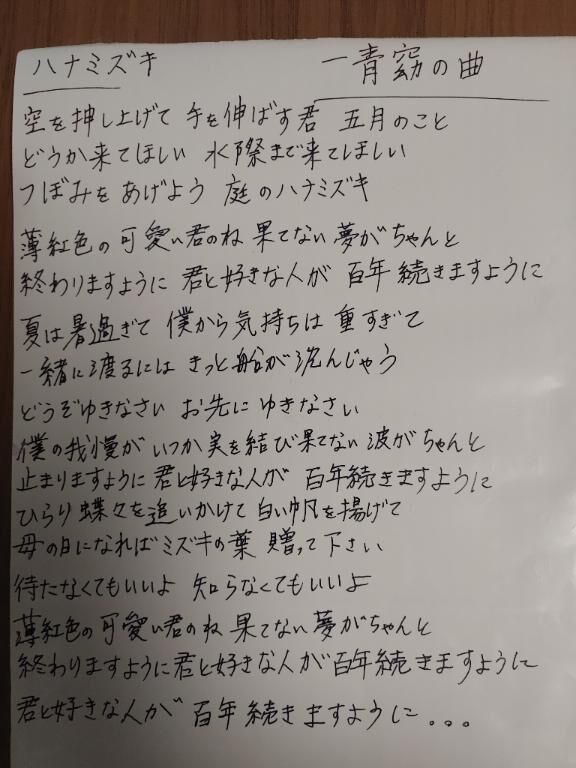 ハナミズキ 一青窈の曲
空を押し上げて 手を伸ばす君 五月のこと
どうか来てほしい 水際まで来てほしい
つぼみを あげよう 庭のハナミズキ
薄紅色の可愛い君のね 果てない夢がちゃんと
終わりますように 君と好きな人が 百年続きますように
夏は暑過ぎて 僕から気持ちは 重すぎて
一緒に渡るには きっと船が沈んじゃう
どうぞゆきなさい お先に ゆきなさい
僕の我慢がいつか実を結び果てない波がちゃんと
止まりますように 君と好きな人が 百年続きますように
ひらり蝶々を追いかけて 白い帆を揚げて
母の日になればミズキの葉 贈って下さい
待たなくてもいいよ 知らなくてもいいよ
薄紅色の可愛い君のね 果てない夢がちゃんと
終わりますように君と好きな人が百年続きますように
君と好きな人が 百年続きますように。。。